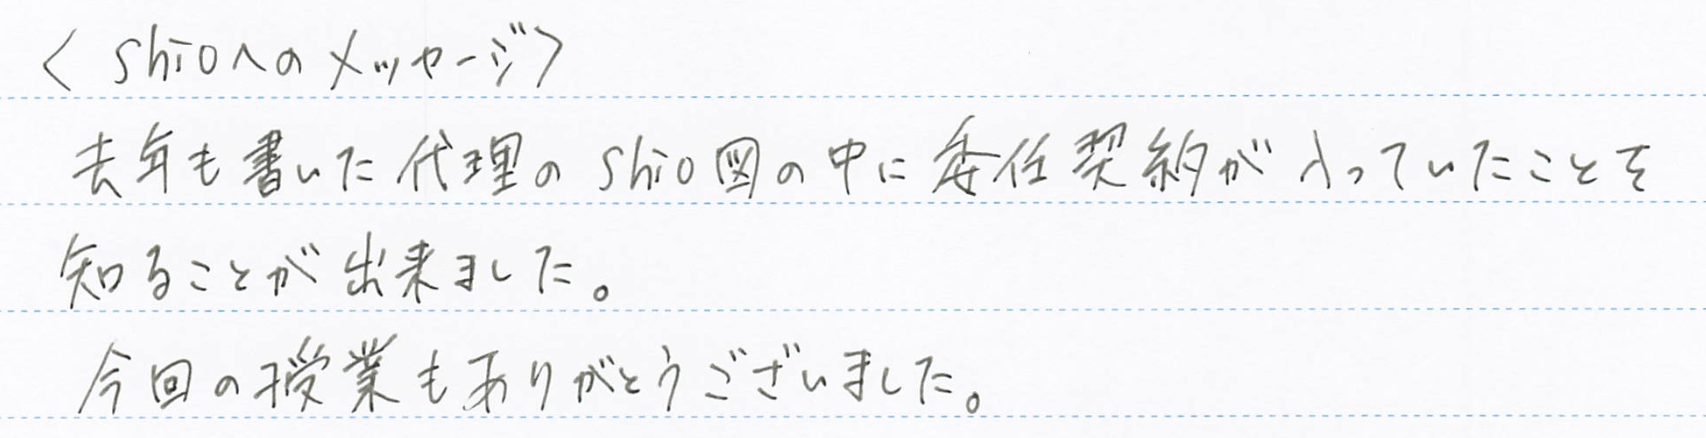 ＜shioへのメッセージ＞
去年も書いた代理のshio図の中に委任契約が入っていたことを
知ることが出来ました。
今回の授業もありがとうございました。